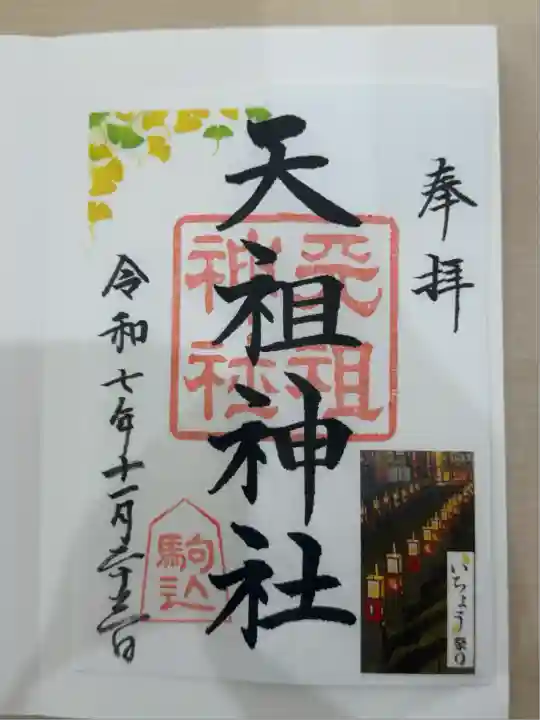 奉拝
天祖神社
天祖神社
駒込
令和七年十一月二十三日
いちょう祭り